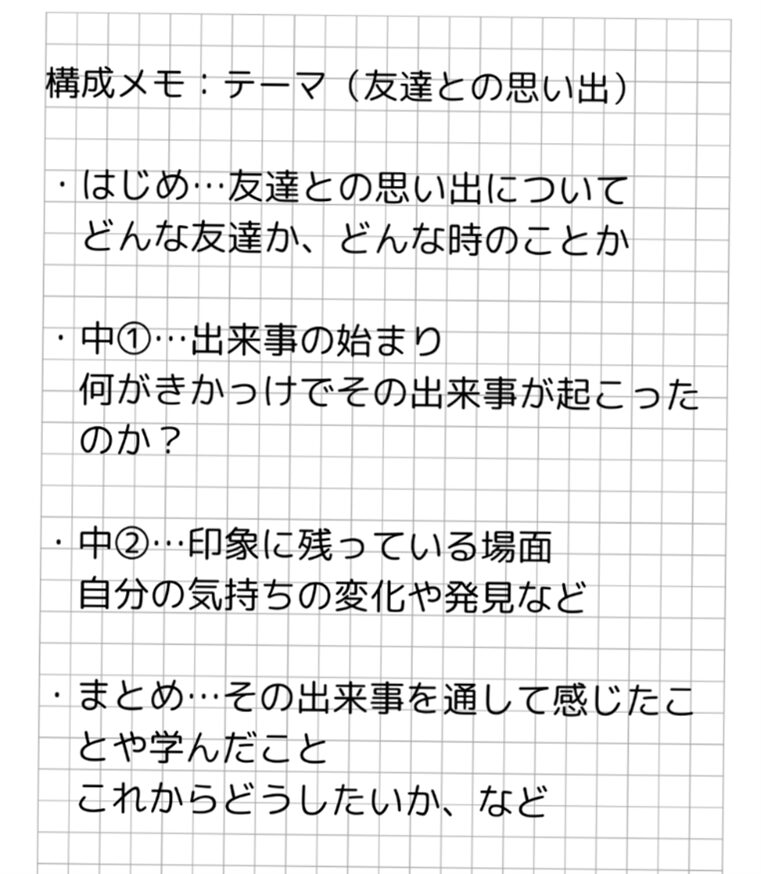 構成メモ：テーマ（友達との思い出）
・はじめ…友達との思い出について
どんな友達か、どんな時のことか
・中①…出来事の始まり
何がきかっけでその出来事が起こった
のか？
・中②…印象に残っている場面
自分の気持ちの変化や発見など
・まとめ…その出来事を通して感じたこ
とや学んだこと
これからどうしたいか、など